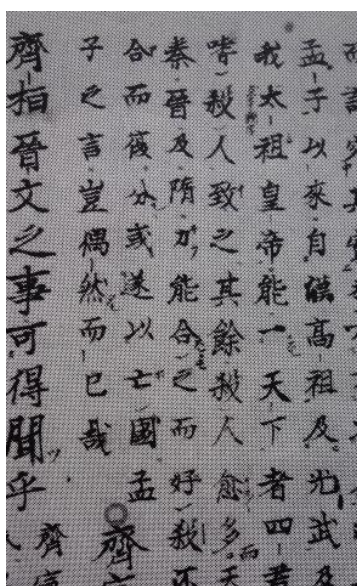 而詳究其實
孟子以來自漢高祖及光武及
我太祖皇帝能一天下者四
嗜殺人致之其餘殺人愈多而
秦晉及隋力能合之而好殺不
合而復分或遂以亡國孟
子之言豈偶然而已哉
齊
齊桓晉文之事可得聞乎
齊宣